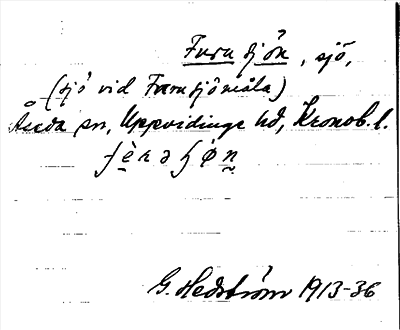 Furusjön, sjö,
(sjö vid Furusjömåla)
Åseda sn, Uppvidinge hd, Kronob. l.
G. Hedström 1913-36